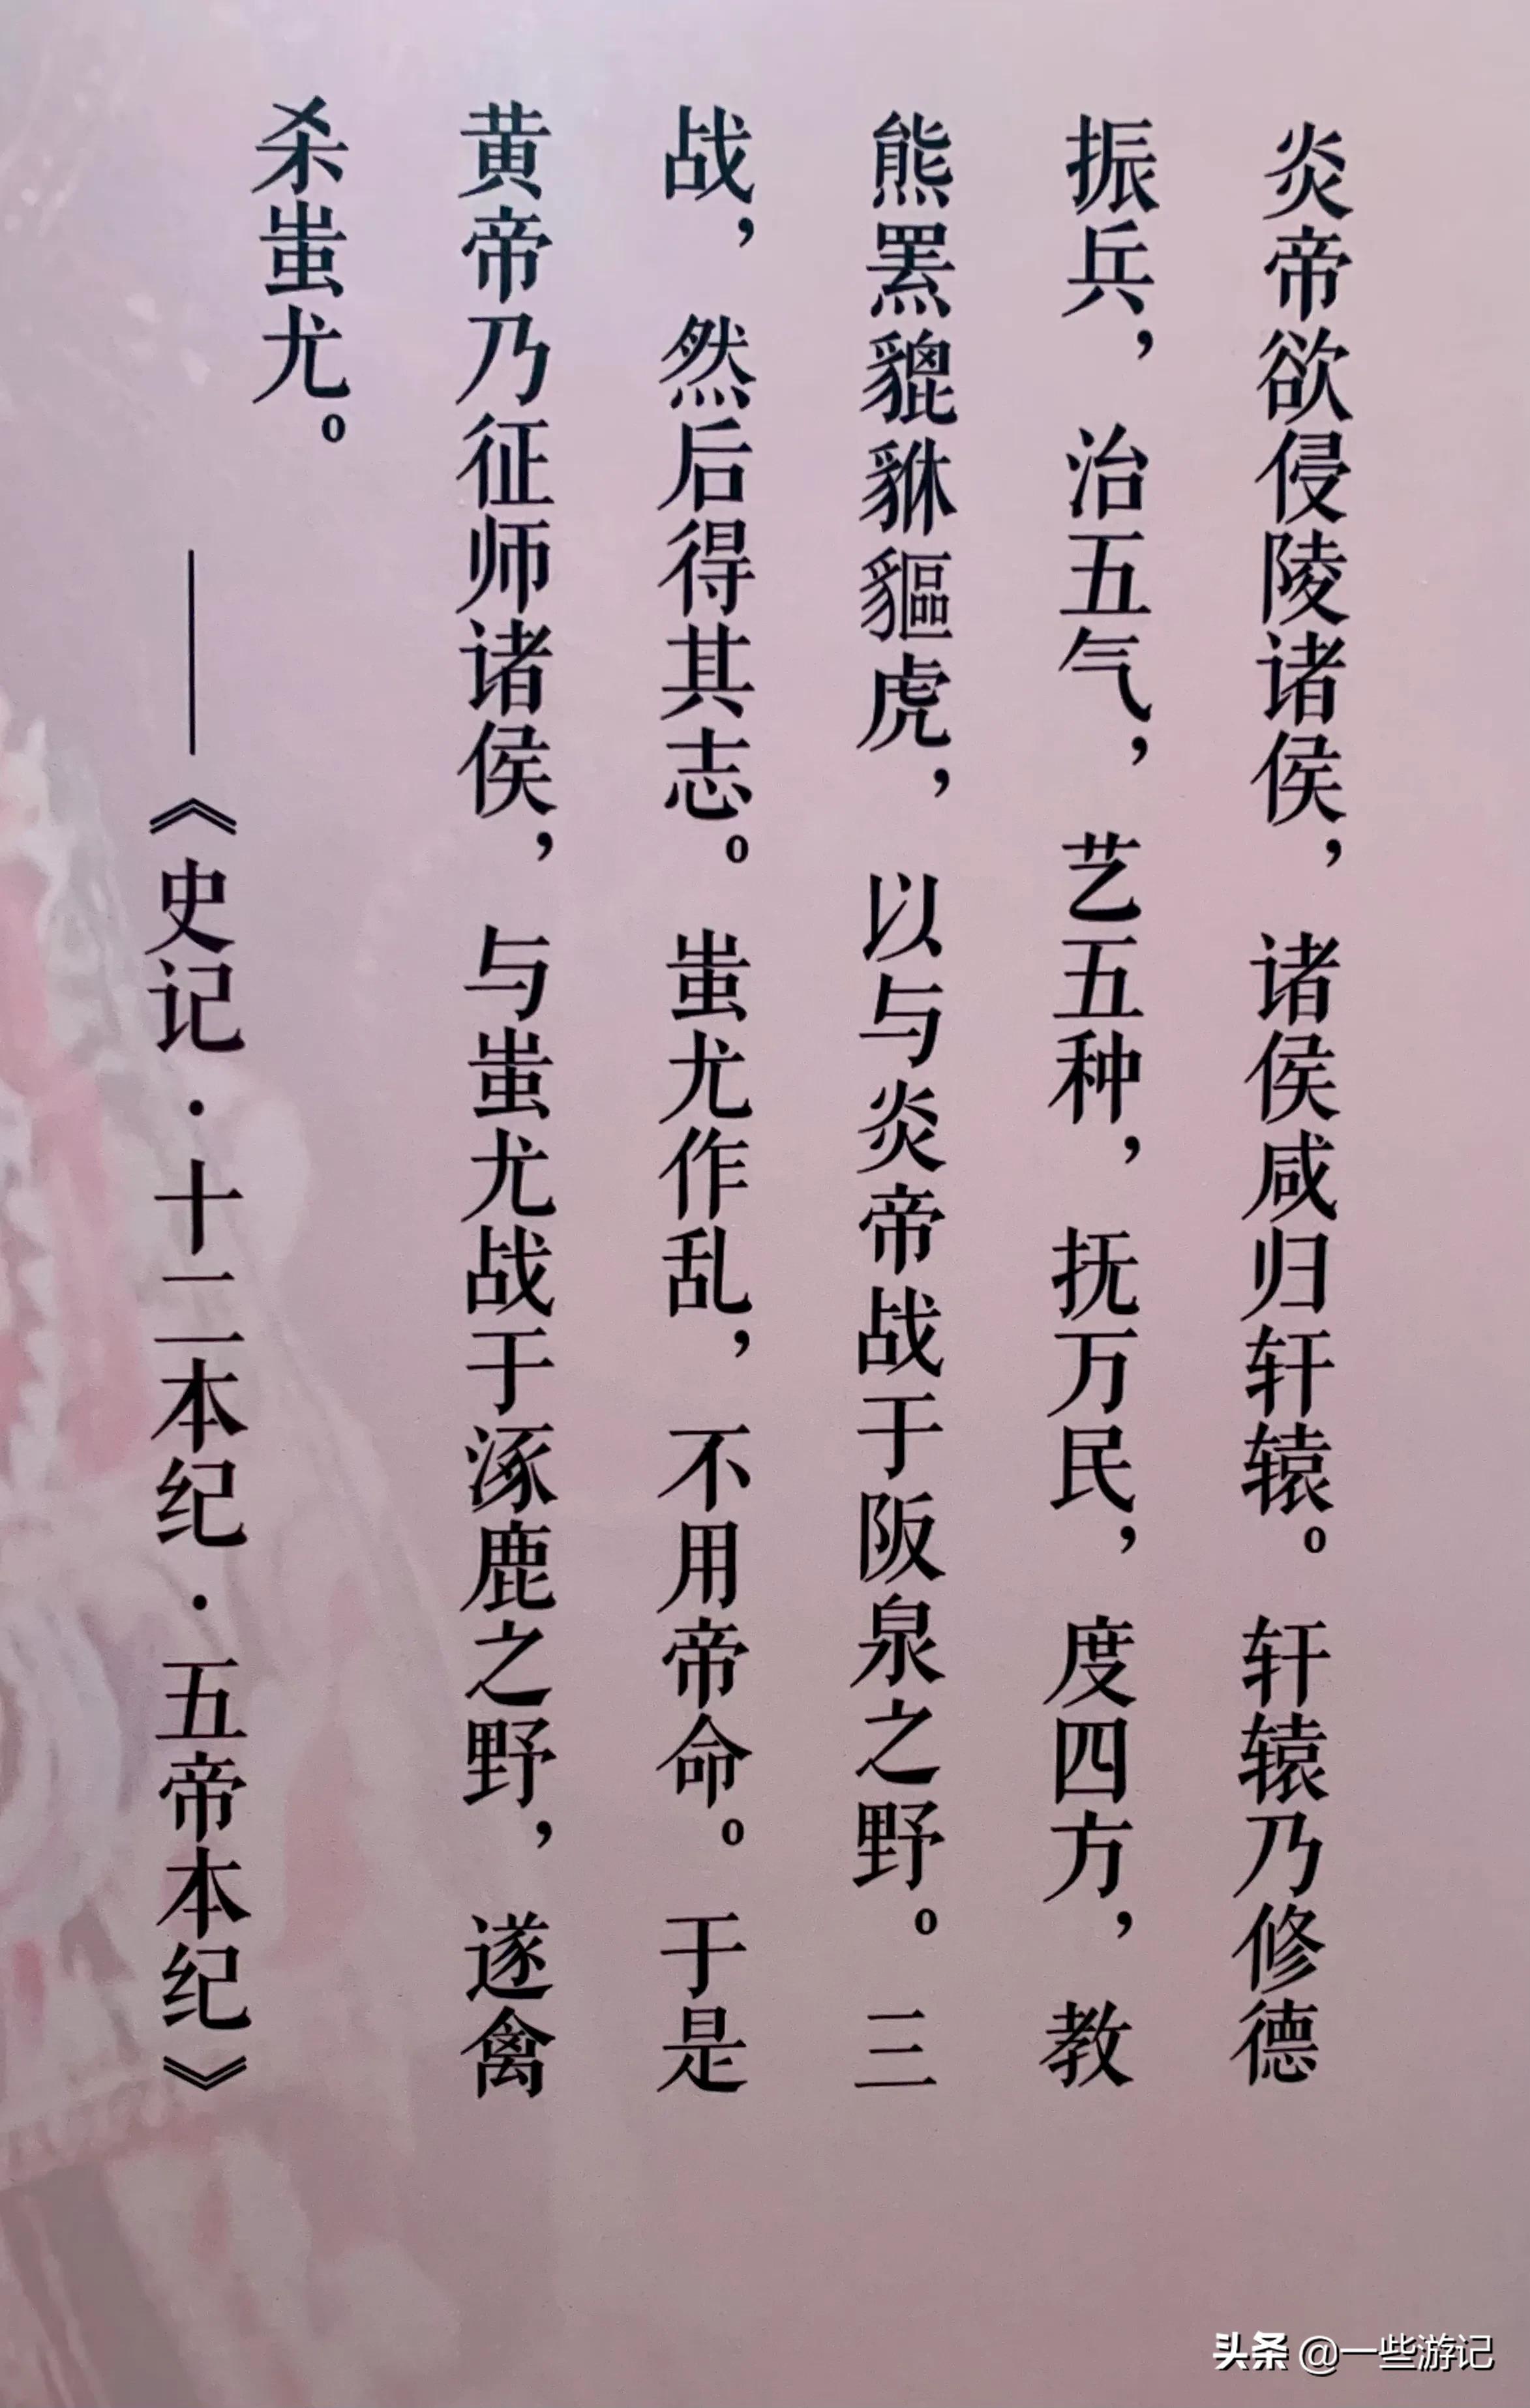 炎帝欲侵陵诸侯，诸侯咸归轩辕。轩辕乃修德
振兵，治五气，艺五种，抚万民，度四方，教
熊罴貔貅貙虎，以与炎帝战于阪泉之野。三
战，然后得其志。蚩尤作乱，不用帝命。于是
黄帝乃征师诸侯，与蚩尤战于涿鹿之野，遂禽
杀蚩尤。
——《史记·十二本纪·五帝本纪》
头条 @一些游记